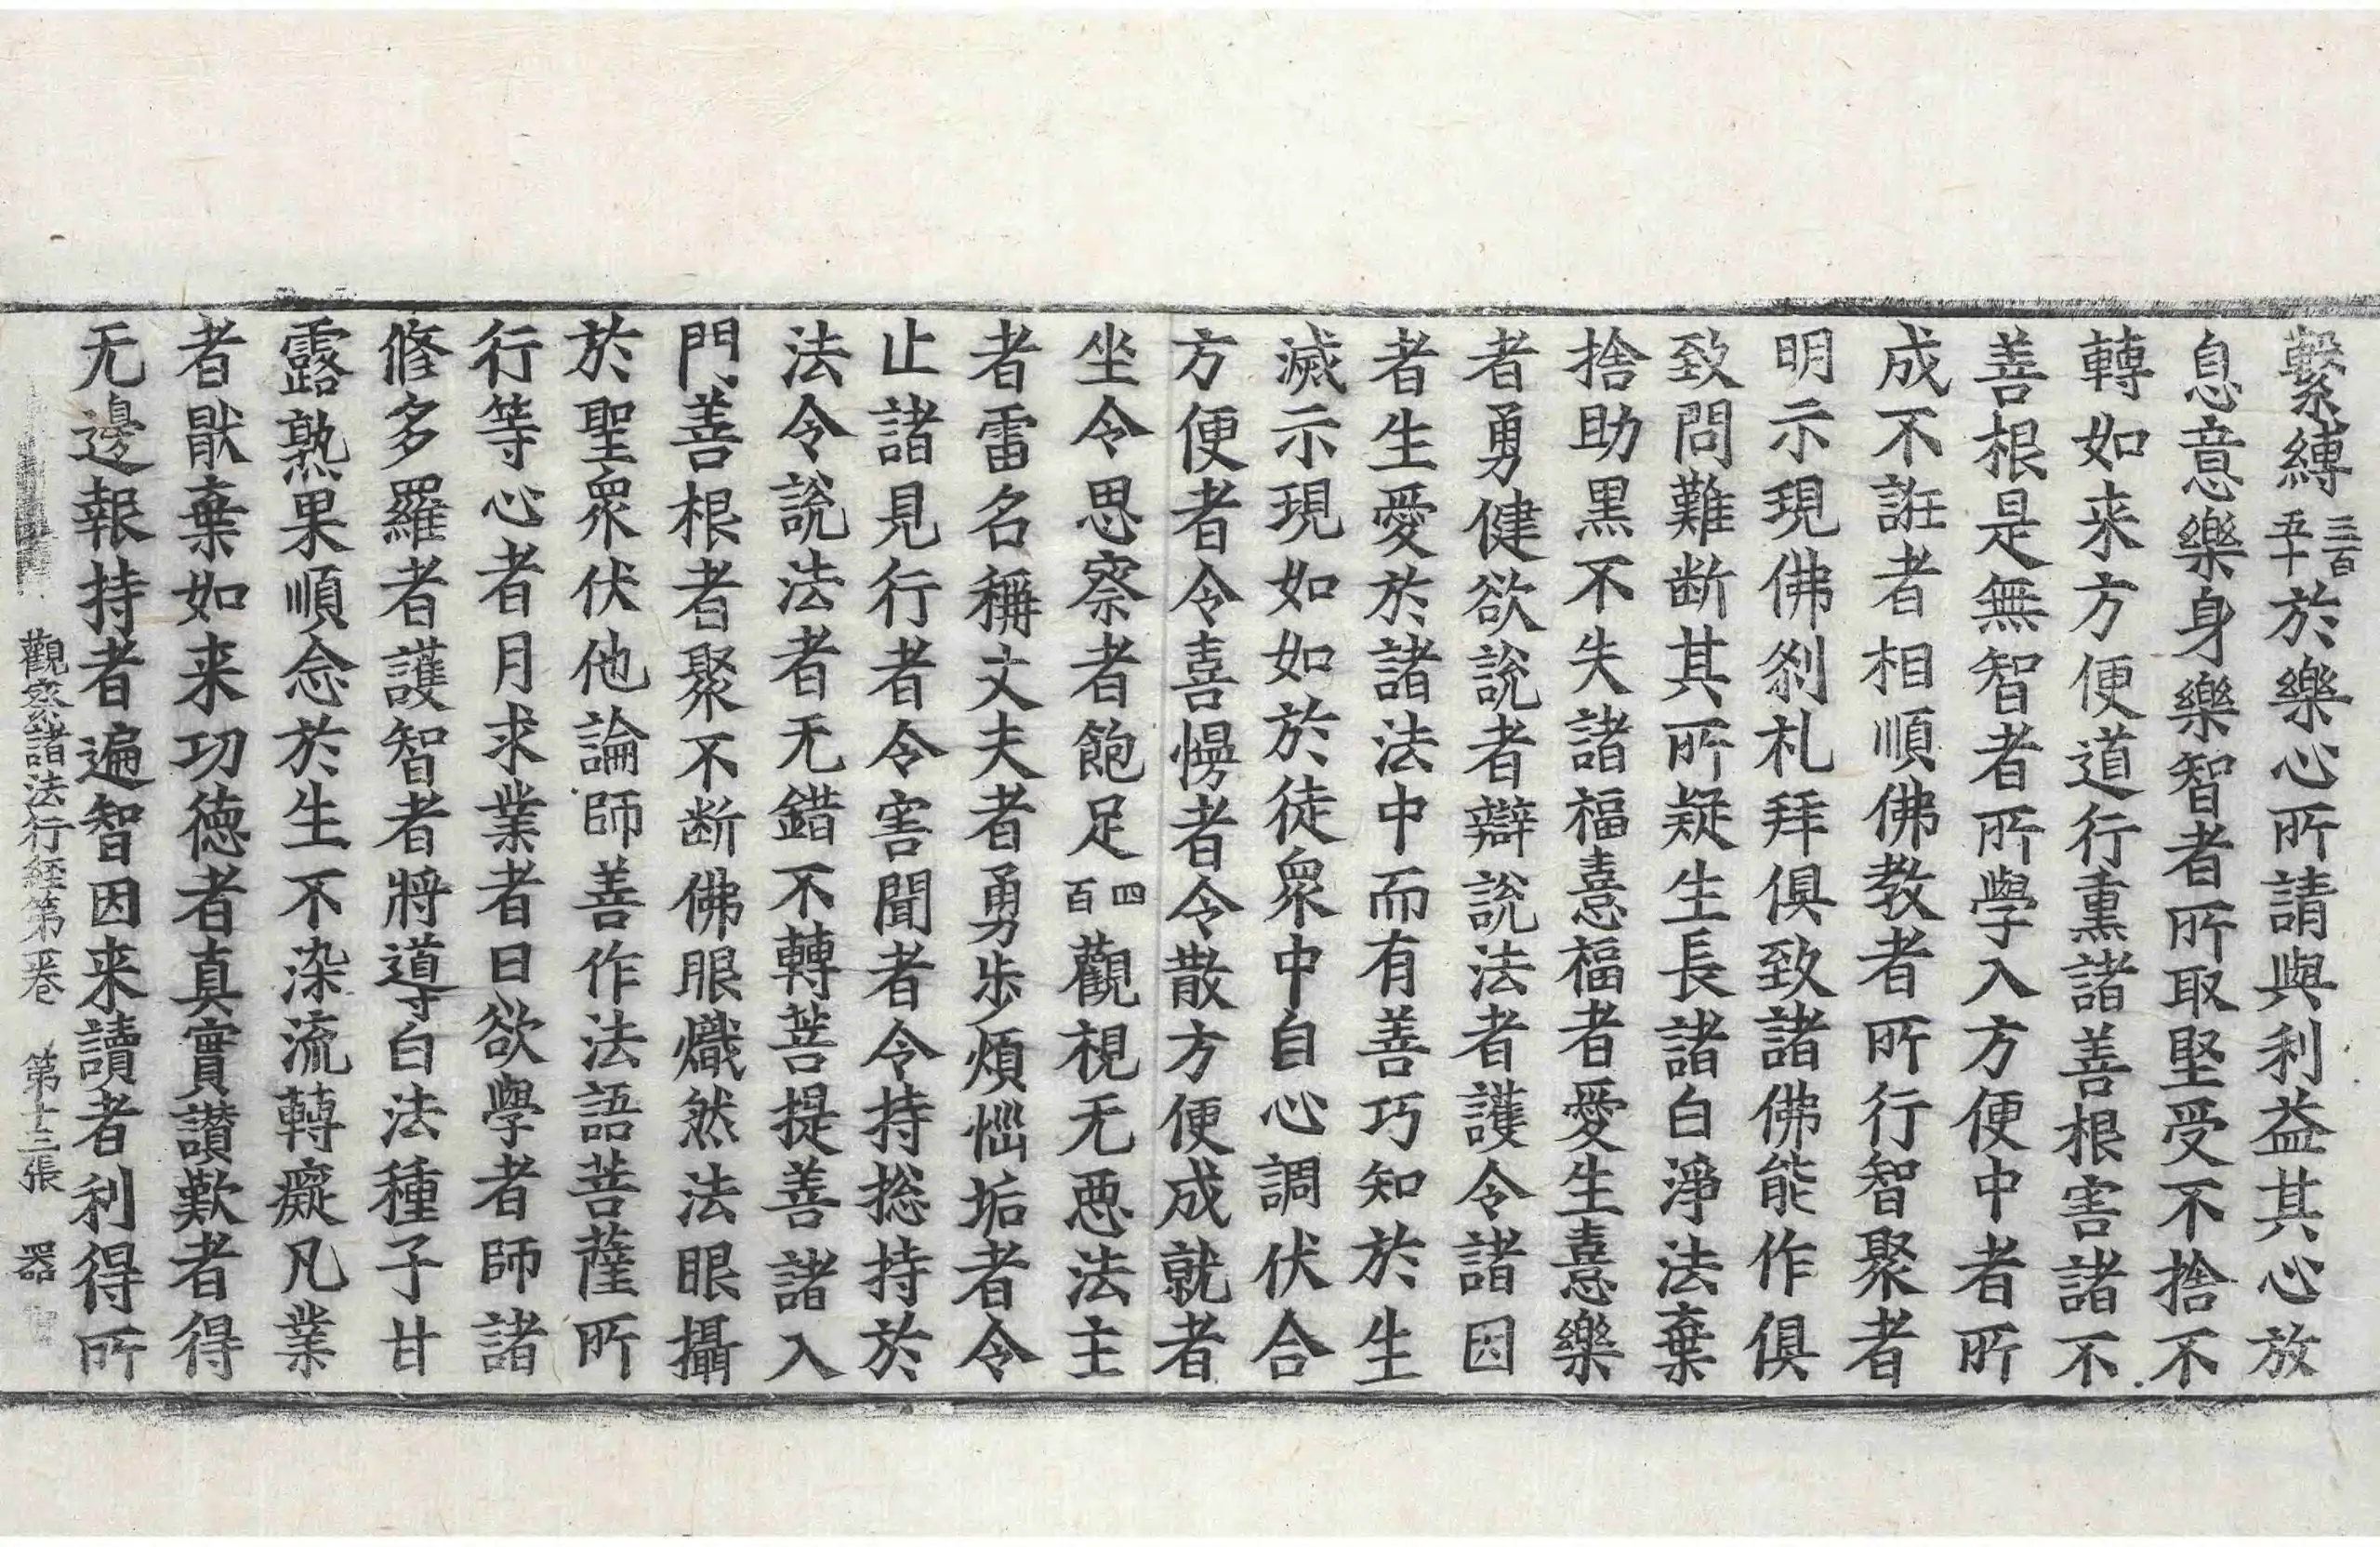 繫縛三百五十於樂心所請與利益其心放
息意樂身樂智者所取堅受不捨不
轉如来方便道行熏諸善根害諸不
善根是無智者所學入方便中者所
成不誑者相順佛教者所行智聚者
明示現佛刹札拜俱致諸佛能作俱
致問難断其所疑生長諸白淨法棄
捨助黒不失諸福憙福者愛生憙樂
者勇健欲說者辯說法者護令諸因
者生愛於諸法中而有善巧知於生
滅示現如如於徒衆中自心調伏合
方便者令喜慢者令散方便成就者
坐令思察者飽足四百觀視无惡法主
者雷名稱丈夫者勇步煩惱垢者令
止諸見行者令害聞者令持捴持於
法令說法者无錯不轉菩提善諸入
門善根者聚不断佛眼熾然法眼攝
於聖衆伏他論師善作法語菩薩所
行等心者月求業者日欲學者師諸
修多羅者護智者將導白法種子甘
露熟果順念於生不染流轉癡凡業
者猒棄如来功德者真實讃歎者得
无邊報持者遍智因来讀者利得所
觀察諸法行経第巻 第十三張 器